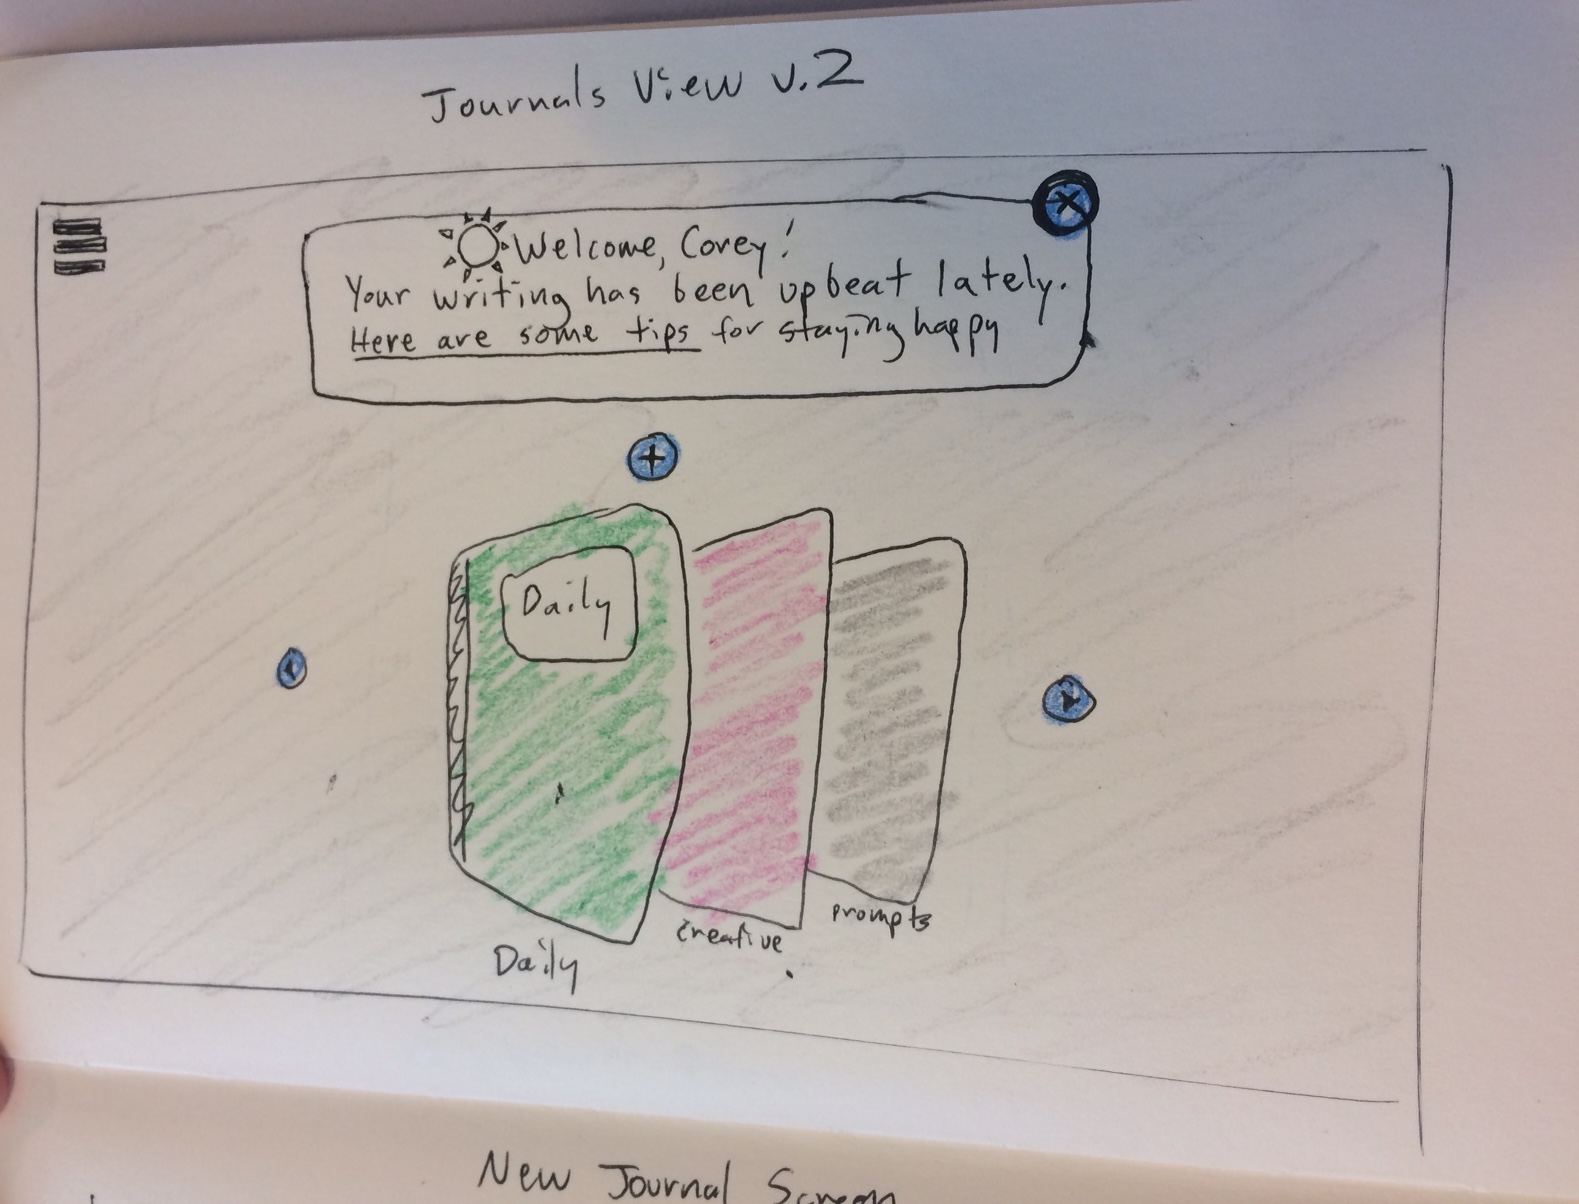 Journals View v.2
Welcome, Corey!
Your writing has been upbeat lately.
Here are some tips for staying happy
Daily
Daily
Creative
Prompts
New Journal Screen